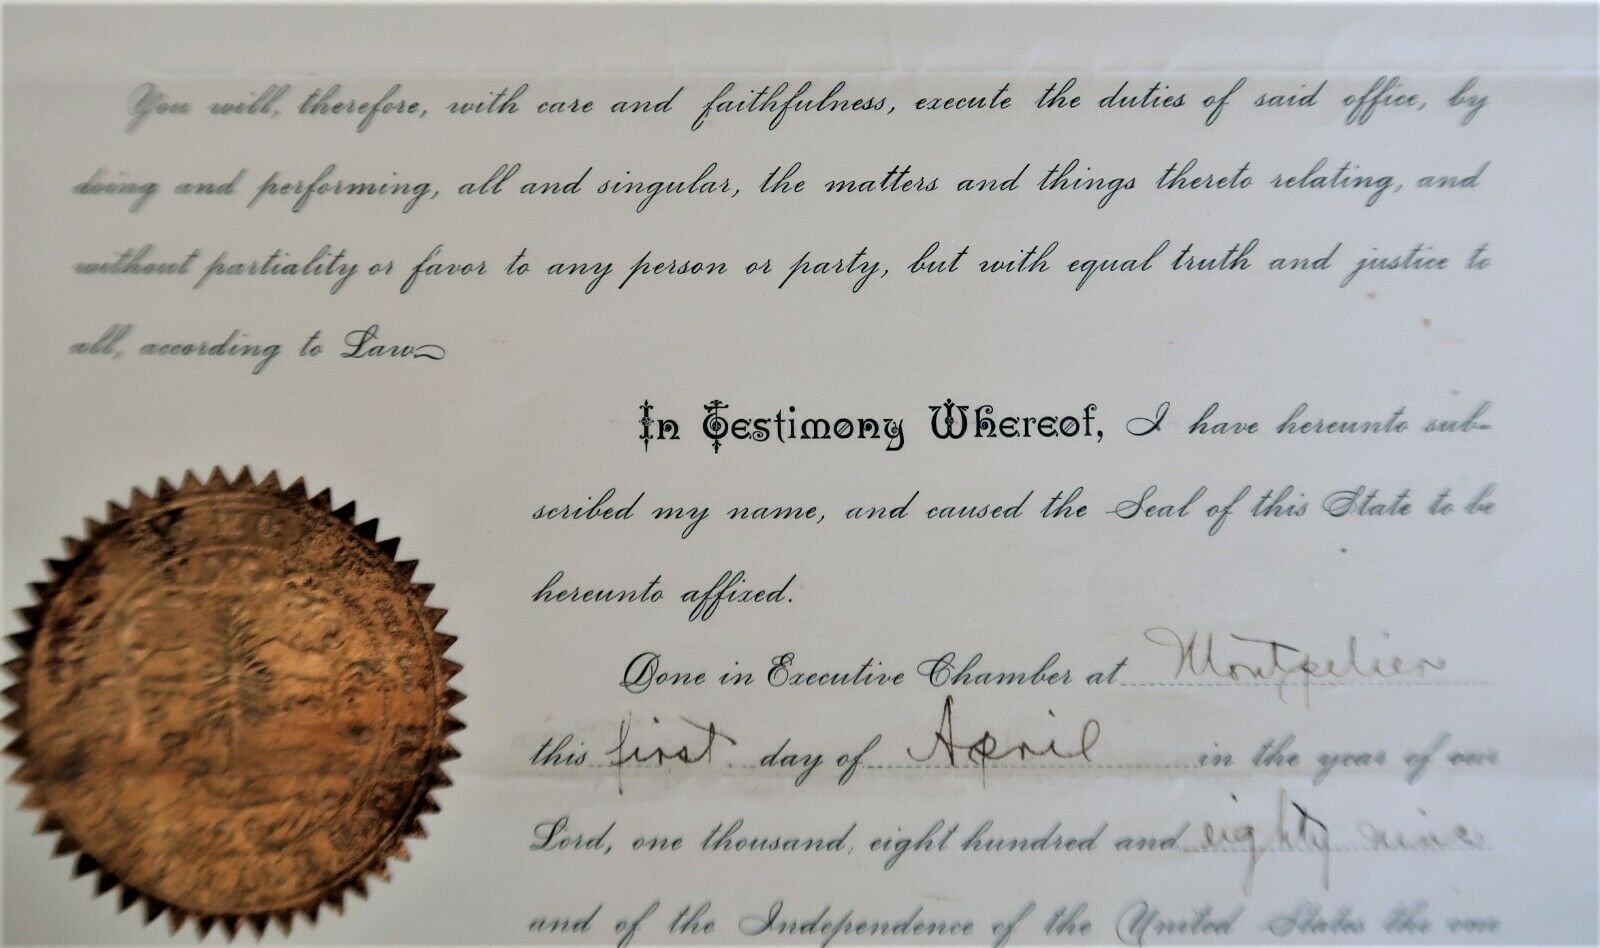 You will, therefore, with care and faithfulness, execute the duties of said office, by
doing and performing, all and singular, the matters and things thereto relating, and
without partiality or favor to any person or party, but with equal truth and justice to
all, according to Law
In Testimony Whereof, I have hereunto sub-
scribed my name, and caused the Seal of this State to be
hereunto affixed.
Done in Executive Chamber at Montpelier
this first day of April in the year of our
Lord, one thousand, eight hundred and eighty nine
and of the Independence of the United States the one